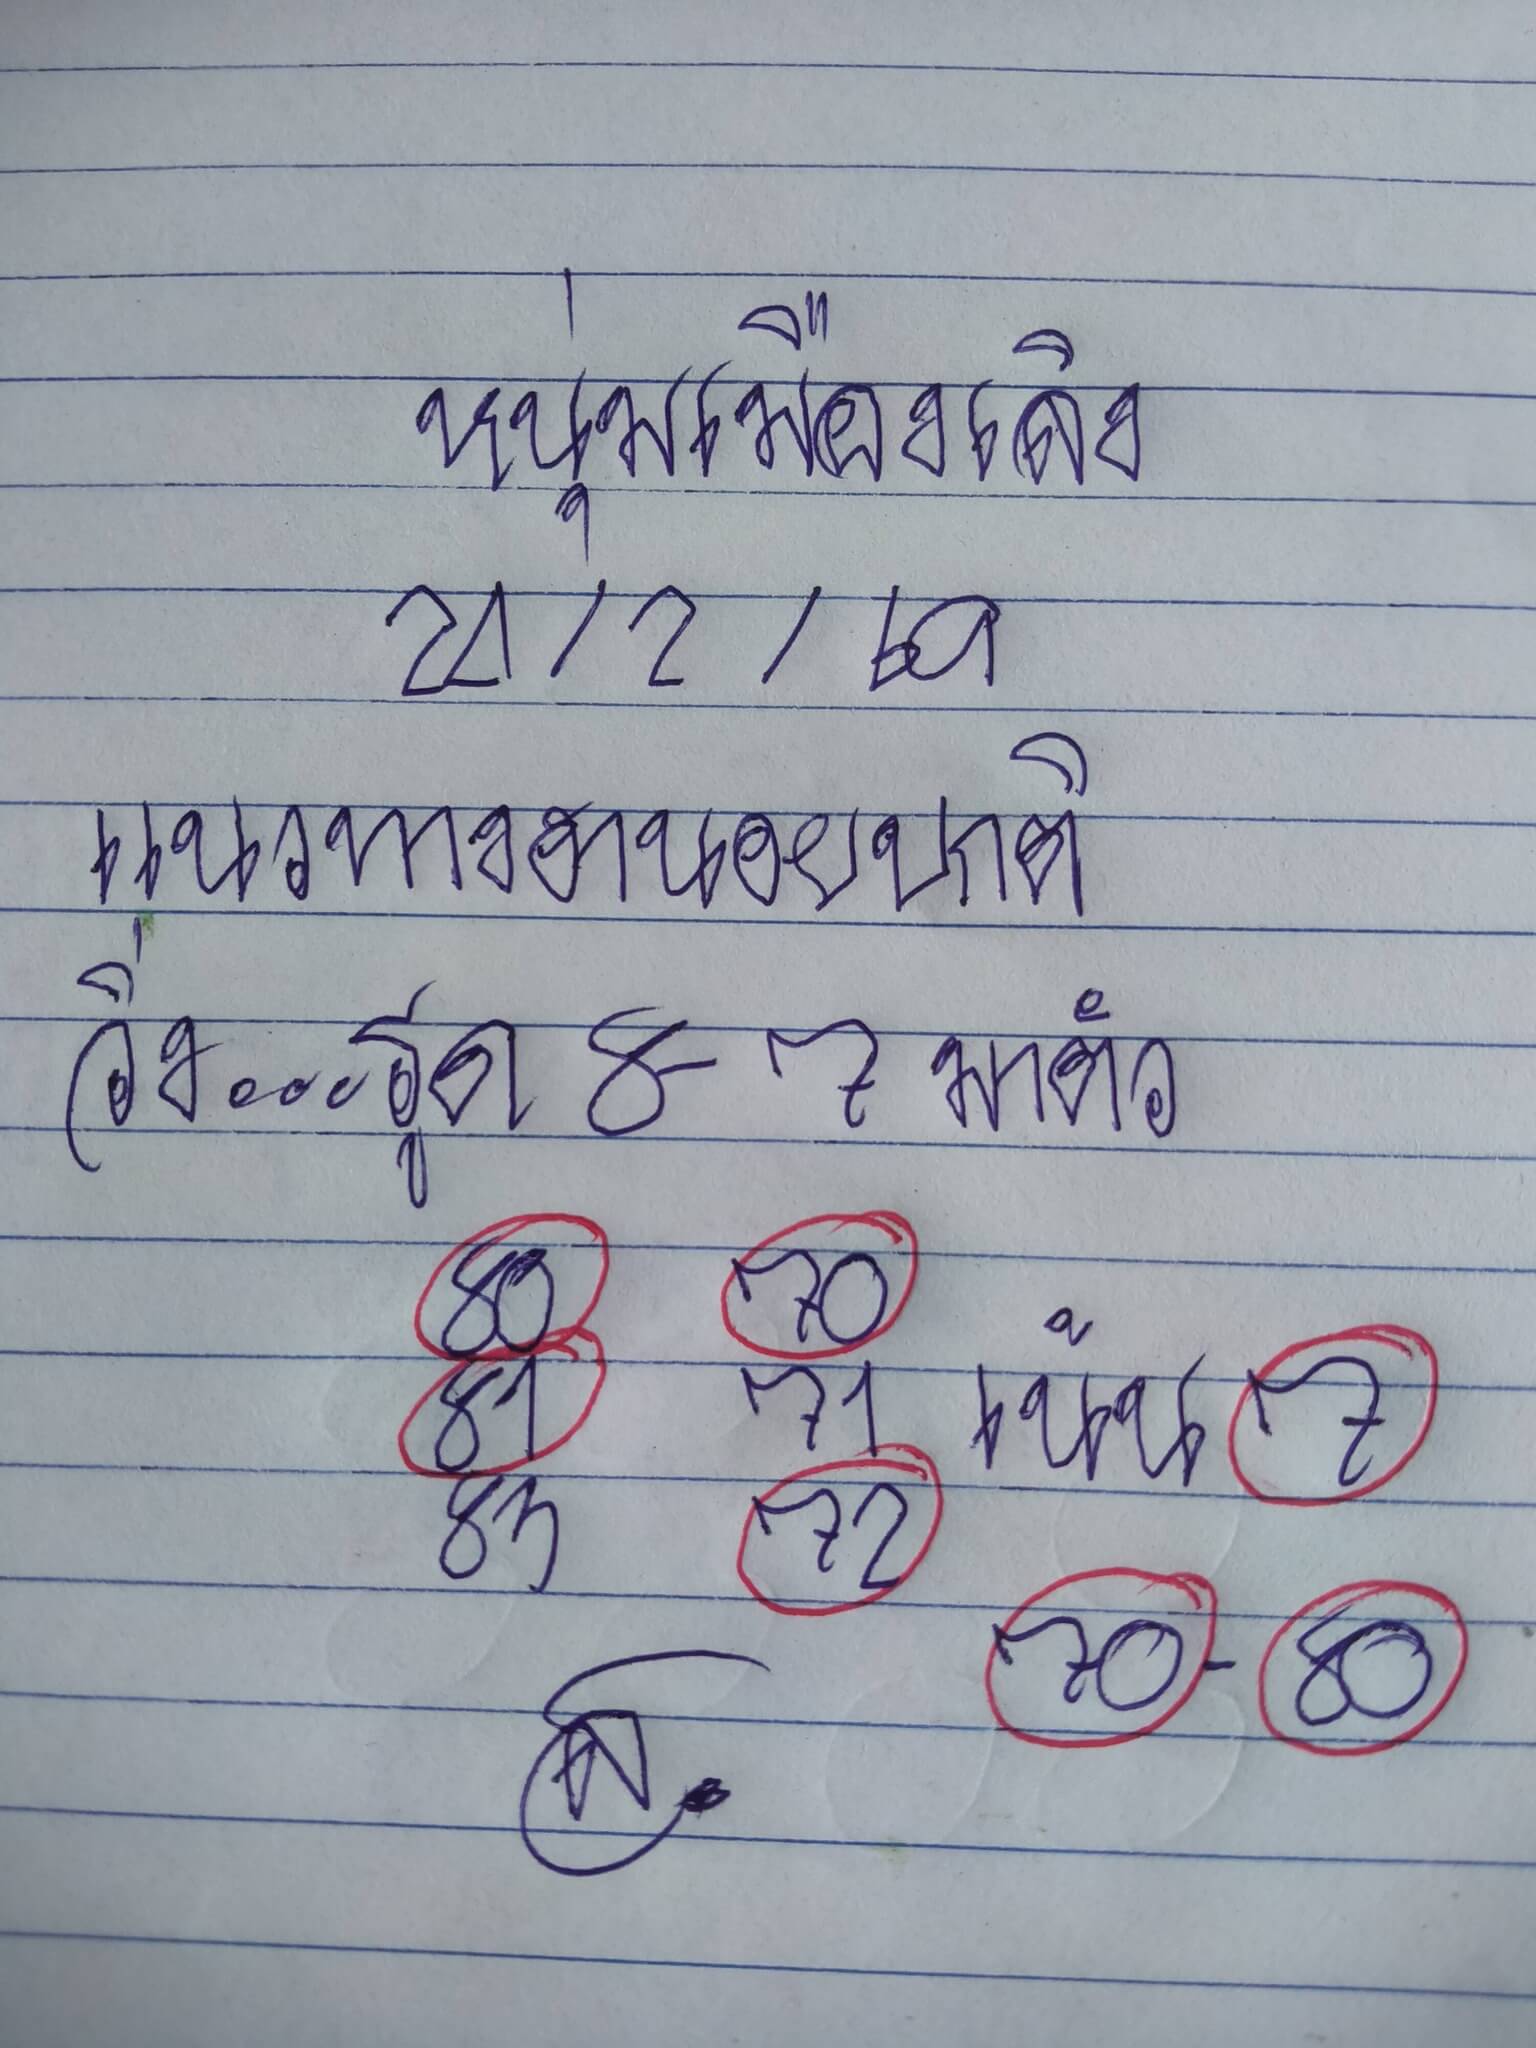 หนุ่มเมืองเถิง
21/2/69
แนวทางฮานอยปกติ
วิ่ง....รูด 8-7 มาตัว
80 70
81 71 เน้น 7
83 72
70-80